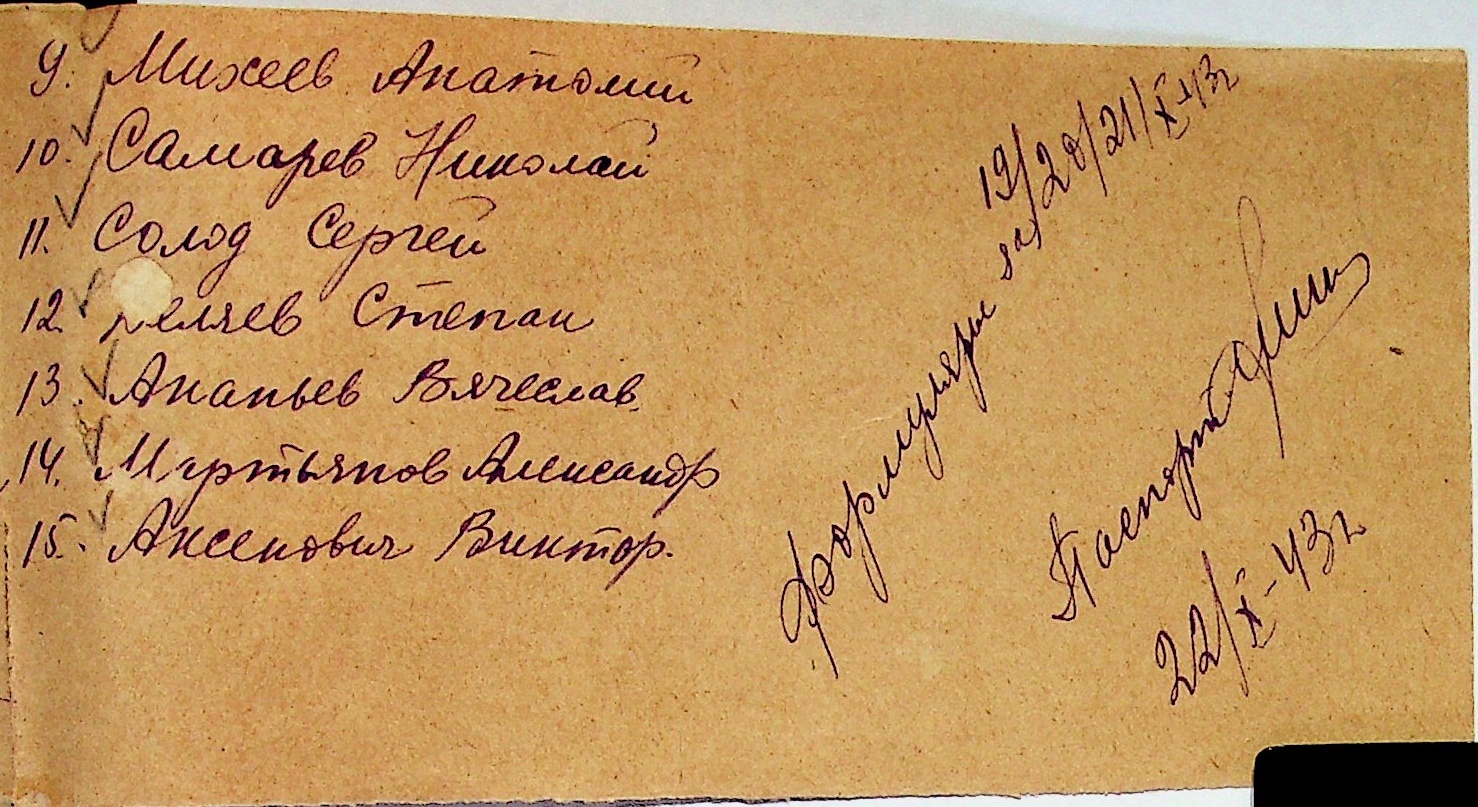 9. Михеев Анатолий
10. Самарев Николай
11. Солод Сергей
12. Беляев Степан
13. Ананьев Вячеслав
14. Мартьянов Александр
15. Аксенович Виктор.
Формуляры за 19/20/21/X-43г
22/X-43г